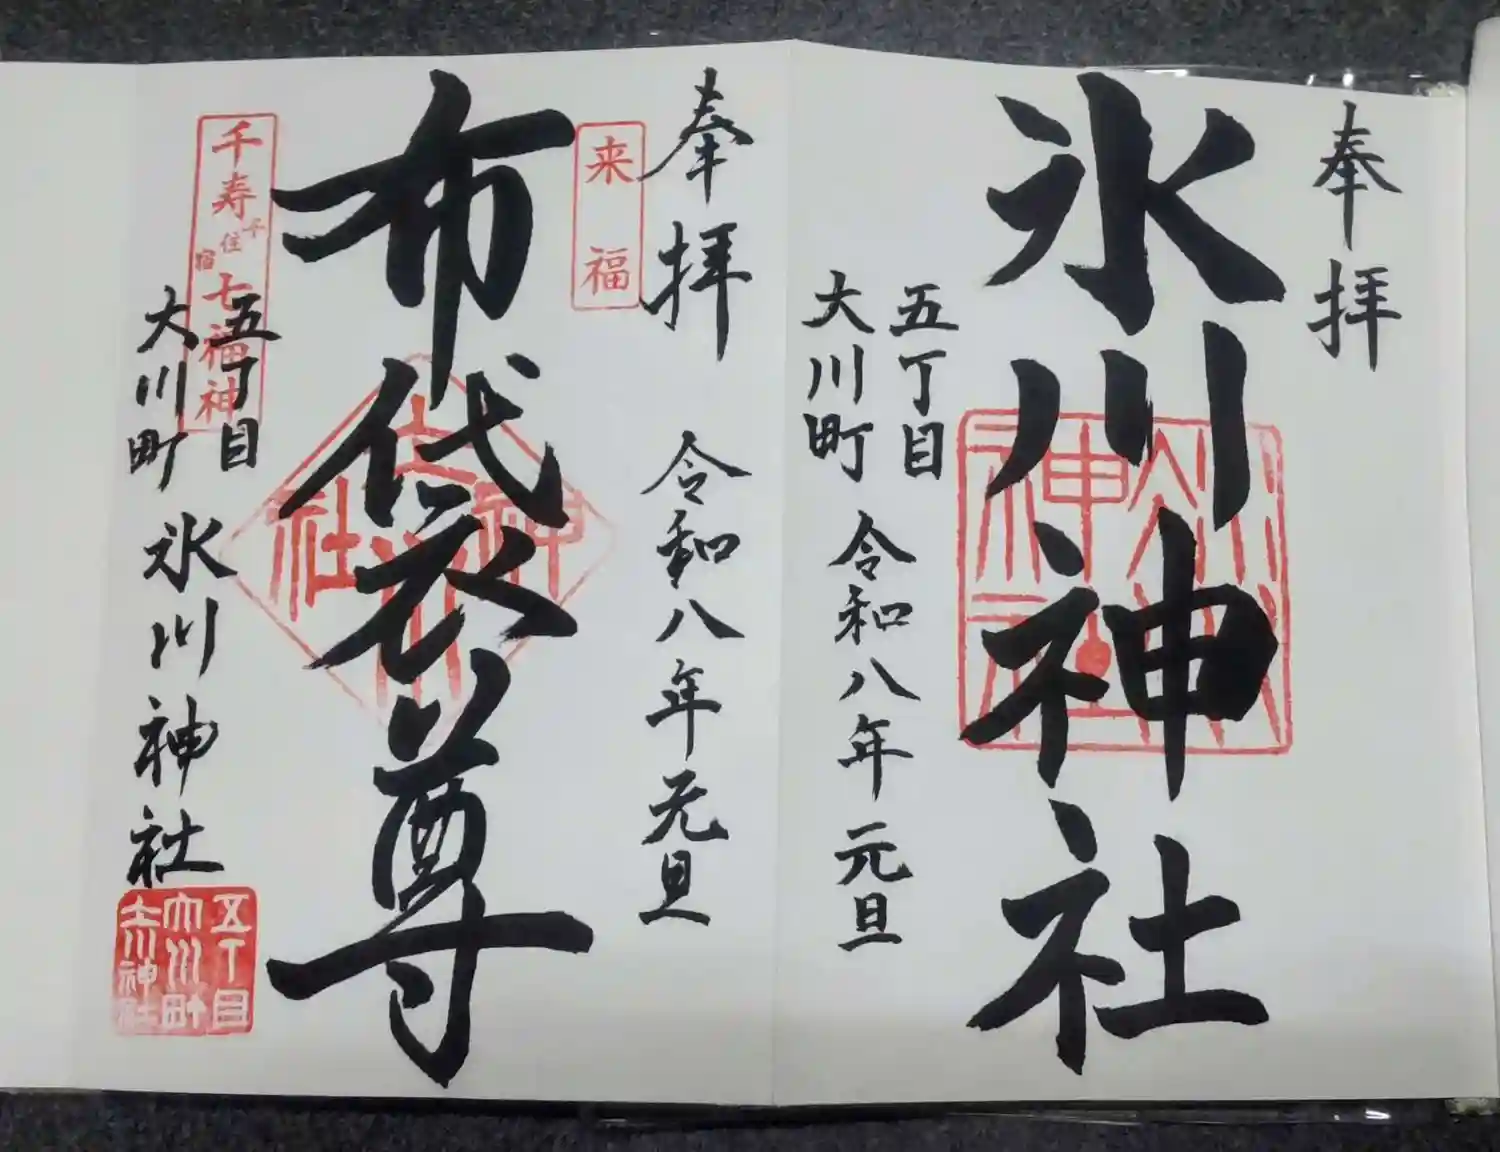 奉拝
氷川神社
五丁目
大川町
令和八年 元旦
奉拝 令和八年元旦
来福
布袋尊
千寿七福神
千住宿
五丁目
大川町
氷川神社
五丁目
大川町
氷川神社